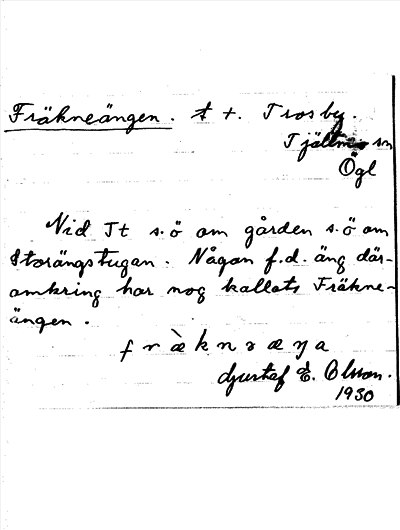 Fräkneängen. t t. Trosby.
Tjällmo sn
Ögl
Vid Tt s.ö om gården s.ö om
Storängstugan. Någon f.d. äng där-
omkring har nog kallats Fräkne-
ängen.
fràknəæŋa
Gustaf E. Olsson.
1930